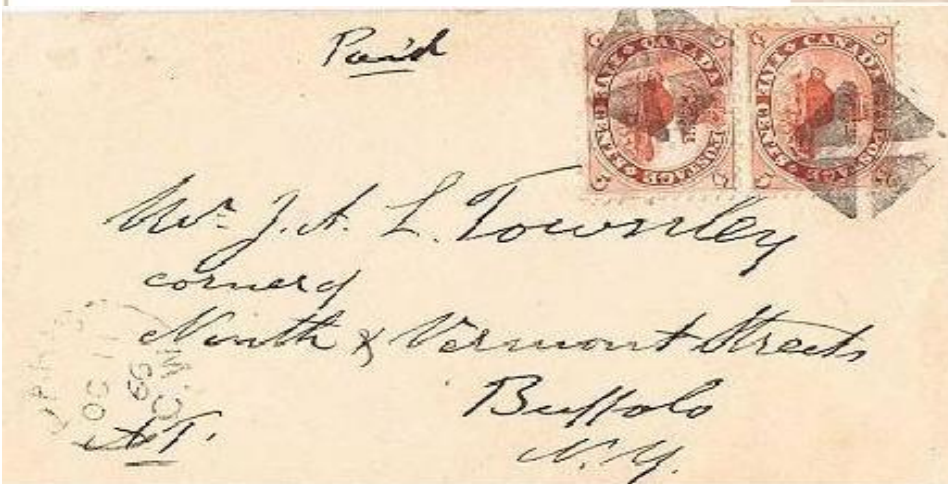 Paid
CANADA POSTAGE FIVE CENTS
5 5 5 5
CANADA POSTAGE FIVE CENTS
5 5 5 5
Mr. J. A. L. Townley
corner of
Ninth & Vermont Streets
Buffalo
N.Y.